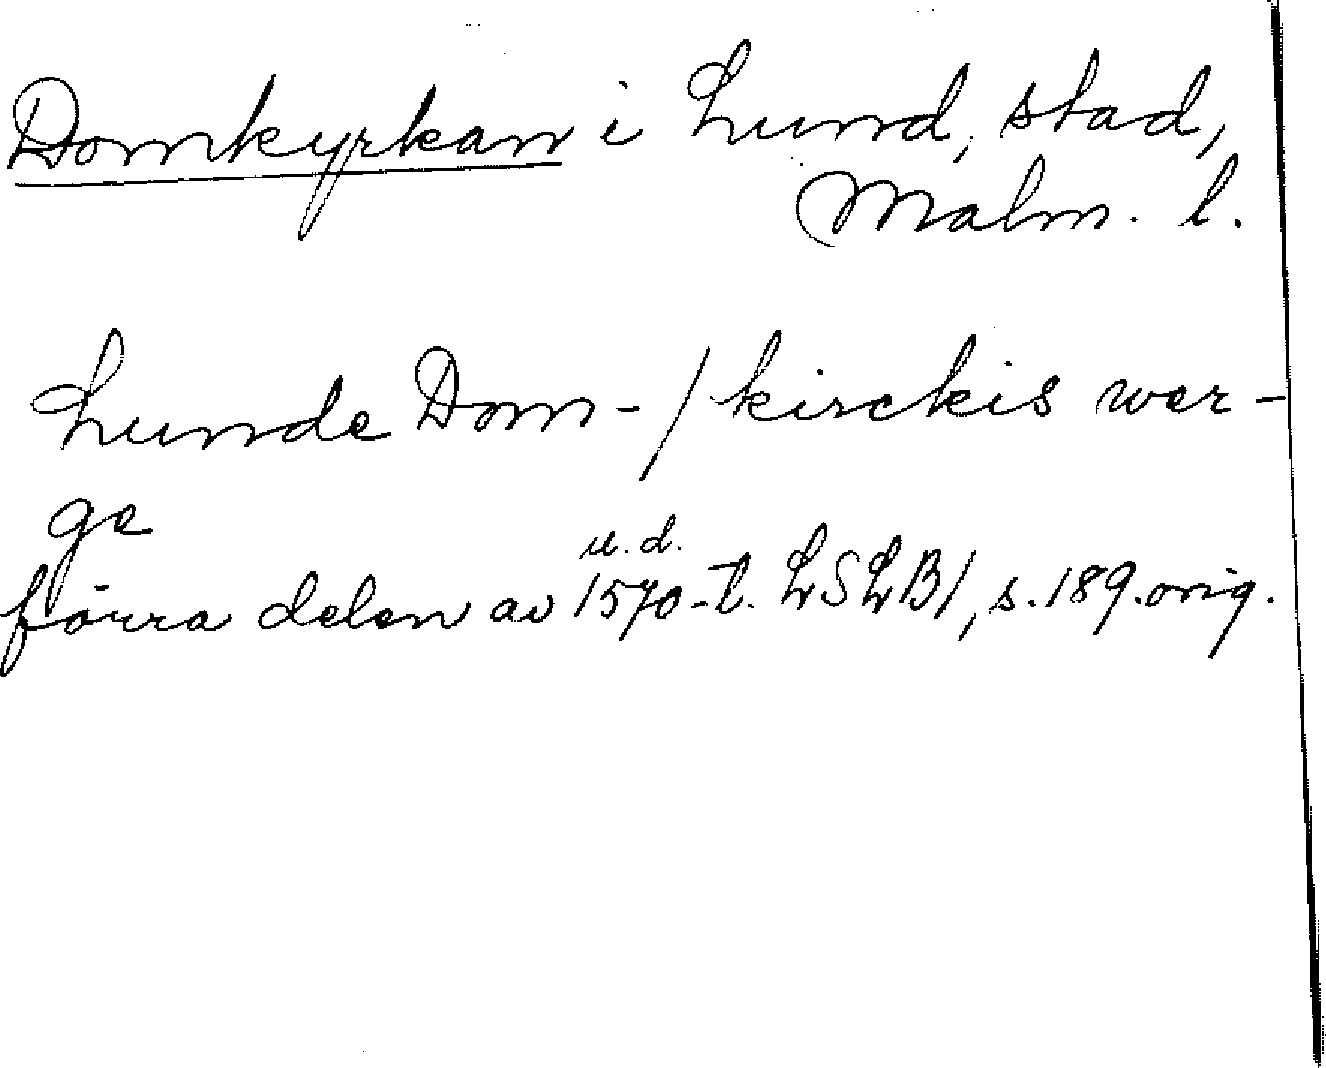 Domkyrkan i Lund, stad,
Malm. l.
Lunde Dom-/kirckis wer-
ge
u. d.
förra delen av 1570-t. LSLB1, s. 189. orig.